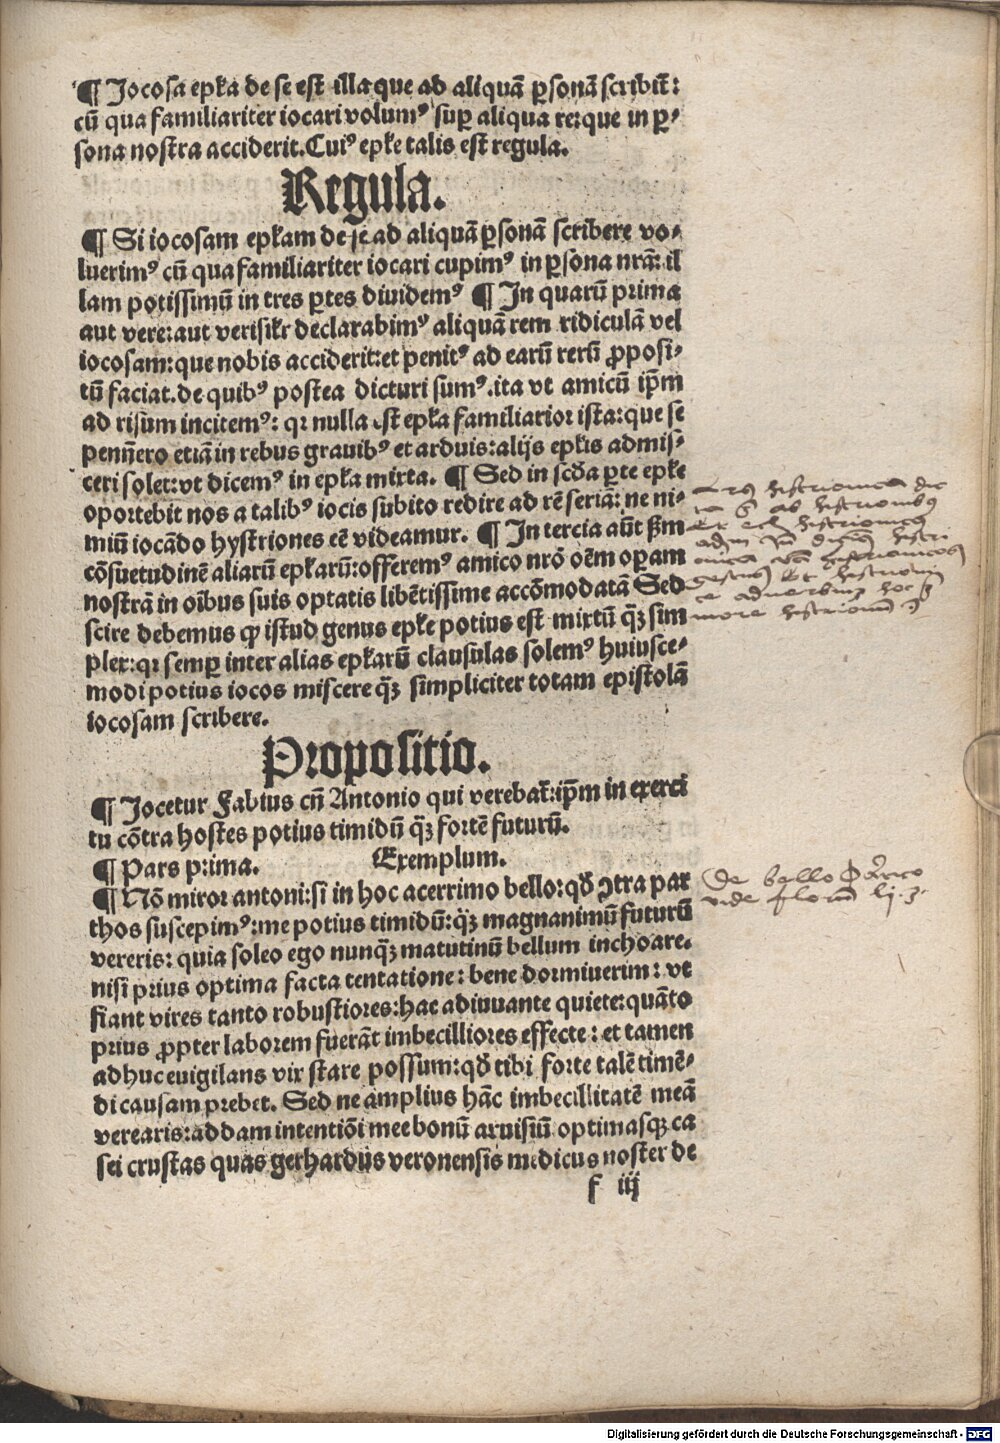 ¶ Jocosa ep̄ła de se est illa que ad aliquā ꝑsonā scribit̄:
cū qua familiariter iocari volumꝰ suꝑ aliqua re: que in ꝑ-
sona nostra acciderit. Cuiꝰ ep̄łe talis est regula.
Regula.
¶ Si iocosam ep̄łam de se ad aliquā ꝑsonā scribere vo-
luerimꝰ cū qua familiariter iocari cupimꝰ in ꝑsona nr̄a: il
lam potissimū in tres ꝑtes diuidemꝰ ¶ In quarū prima
aut vere: aut verisiłr declarabimꝰ aliquā rem ridiculā vel
iocosam: que nobis acciderit: et penitꝰ ad earū rerū ꝓposi-
tū faciat. de quibꝰ postea dicturi sumꝰ. ita vt amicū ip̄m
ad risum incitemꝰ: qꝛ nulla est ep̄ła familiarior ista: que se
pen̄ero etiā in rebus grauibꝰ et arduis: alijs ep̄łis admis-
ceri solet: vt dicemꝰ in ep̄ła mixta. ¶ Sed in scd̄a ꝑte ep̄łe
oportebit nos a talibꝰ iocis subito redire ad rē seriā: ne ni-
miū iocādo hystriones eē videamur. ¶ In tercia aūt ẜm
cōsuetudinē aliarū ep̄łarū: offeremꝰ amico nrō oēm operam
nostrā in oībus suis optatis libētissime accōmodatā Sed
scire debemus ꝙ istud genus ep̄łe potius est mixtū q̄ꝫ sim
plex: qꝛ semꝑ inter alias ep̄łarū clausulas solemꝰ huiusce-
modi potius iocos miscere q̄ꝫ simpliciter totam epistolā
iocosam scribere.
Propositio.
¶ Jocetur Fabius cū Antonio qui verebat̄: ip̄m in exerci
tu cōtra hostes potius timidū q̄ꝫ fortē futurū.
¶ Pars prima. Exemplum.
¶ Nō miror antoni: si in hoc acerrimo bello: qđ ꝯtra par
thos suscepimꝰ: me potius timidū: q̄ꝫ magnanimū futurū
vereris: quia soleo ego nunq̄ꝫ matutinū bellum inchoare.
nisi prius optima facta tentatione: bene dormiuerim: vt
fiant vires tanto robustiores: hac adiuuante quiete: quāto
prius ꝓpter laborem fuerāt imbecilliores effecte: et tamen
adhuc euigilans vix stare possum: qđ tibi forte talē timē-
di causam prebet. Sed ne amplius hāc imbecillitatē meā
verearis: addam intentiōi mee bonū aruisiū optimasqꝫ ca
sei crustas quas gerhardus veronensis medicus noster de
f iij
histrionica dic
ta ab histrionibꝰ
histri
histrionicos
gestus Et histrioni
ce aduerbiū hoc ē
more histrionū
De bello
vide florū li. 3.
Digitalisierung gefördert durch die Deutsche Forschungsgemeinschaft - DFG